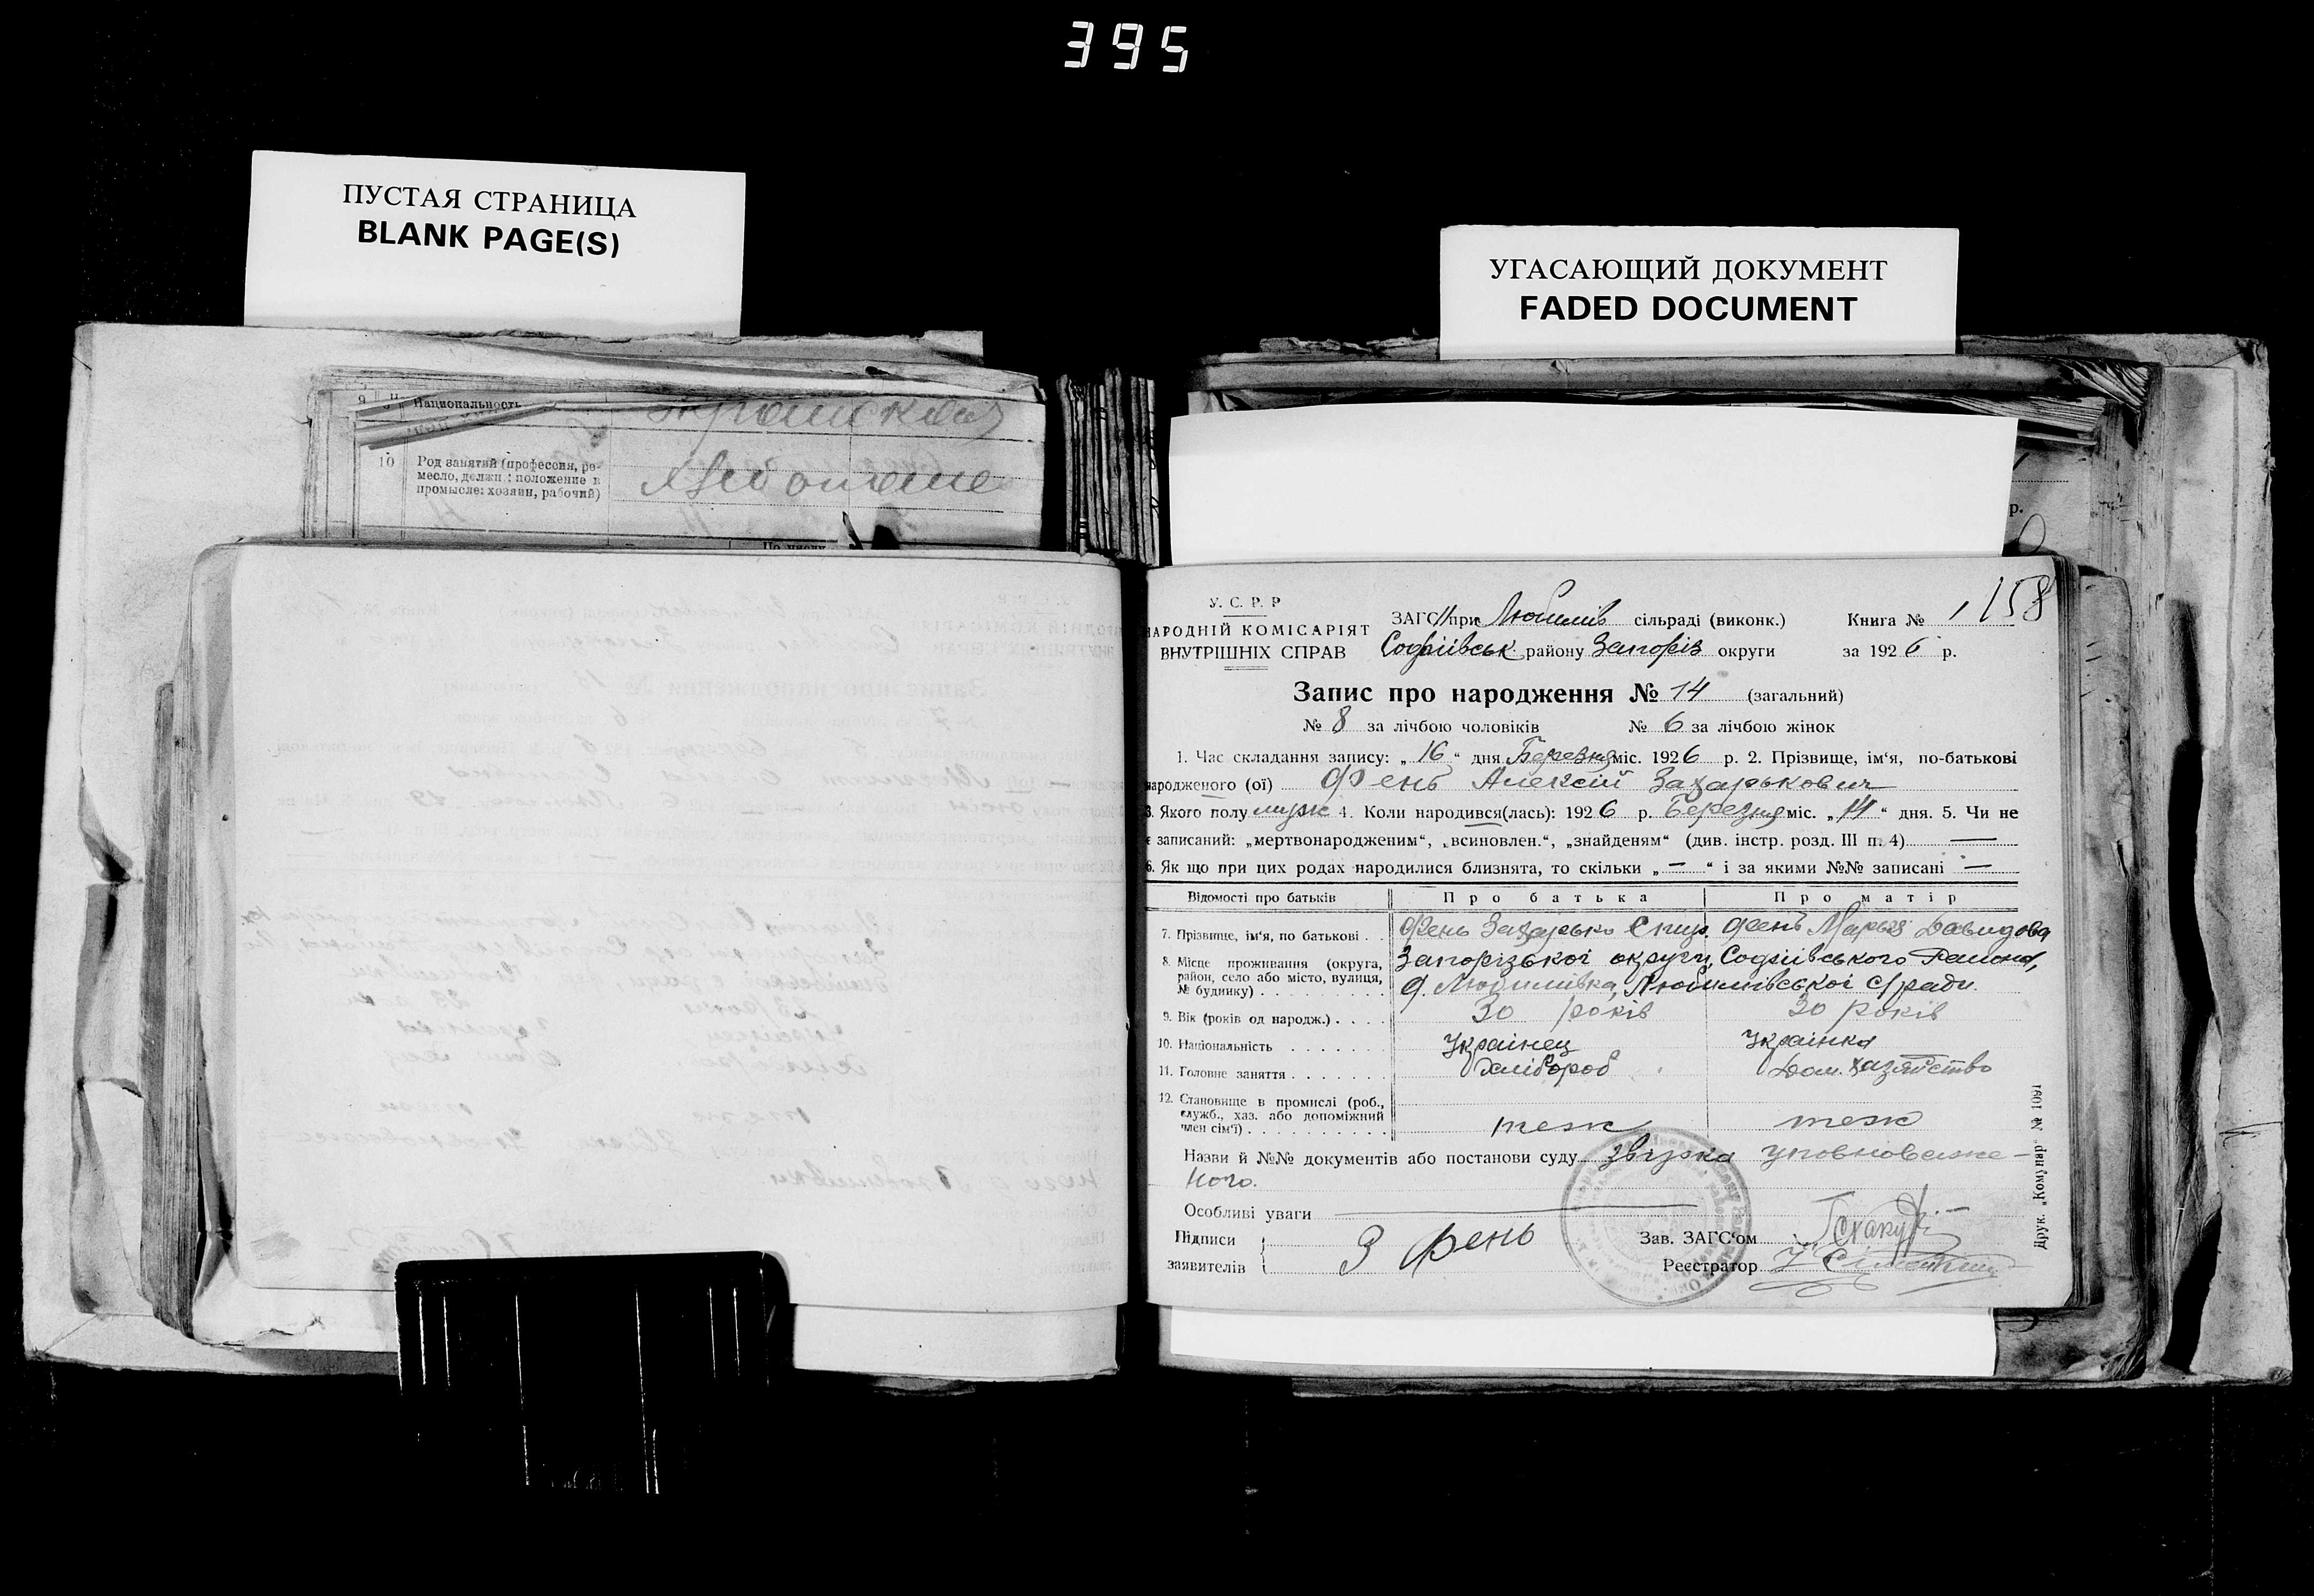 395
ПУСТАЯ СТРАНИЦА
BLANK PAGE(S)
УГАСАЮЩИЙ ДОКУМЕНТ
FADED DOCUMENT
9 Национальность
10 Род занятий (професся, ре-
месло, должн.: положение в
промысле: хозяин, рабочий)
158
У. С. Р. Р
НАРОДНІЙ КОМІСАРІЯТ
ВНУТРІШНІХ СПРАВ
ЗАГС при Любимів сільраді (виконк.) Книга № 1
Софіівськ району Запоріз округи за 1926 р.
Запис про народження № 14 (загальний)
№ 8 за лічбою чоловіків № 6 за лічбою жінок
1. Час складання запису: „16" дня Березня міс. 1926 р. 2. Прізвище, ім'я, по-батькові
народженого (ої) Фень Алексій Захарькович
3. Якого полу муж 4. Коли народився(лась): 1926 р. Березня міс. „14" дня. 5. Чи не
є записаний: „мертвонародженим", „всиновлен.", „знайденям" (див. інстр. розд. III п. 4) —
6. Як що при цих родах народилися близнята, то скільки „—" і за якими №№ записані —
Відомості про батьків Про батька Про матір
7. Прізвище, ім'я, по батькові . . Фень Захарько Фень Марья Давидова
8. Місце проживання (округа, Запорізькоі округи, Софіівського Району,
район, село або місто, вулиця,
№ будинку) . . . . . . . . . Любимівка, Любимівськоі с/ради.
9. Вік (років од народж.) . . . . 30 років 30 років
10. Національність . . . . . . . Украінец Украінка
11. Головне заняття . . . . . . . Хлібороб Дом. хазяйство
12. Становище в промислі (роб.,
служб., хаз. або допоміжний
член сім'ї) . . . . . . . . . . теж теж
Назви й №№ документів або постанови суду звізка уповноваже-
ного.
Особливі уваги —
Підписи
заявителів З Фень
Зав. ЗАГС'ом
Реєстратор
Друк. „Комунар" № 1091